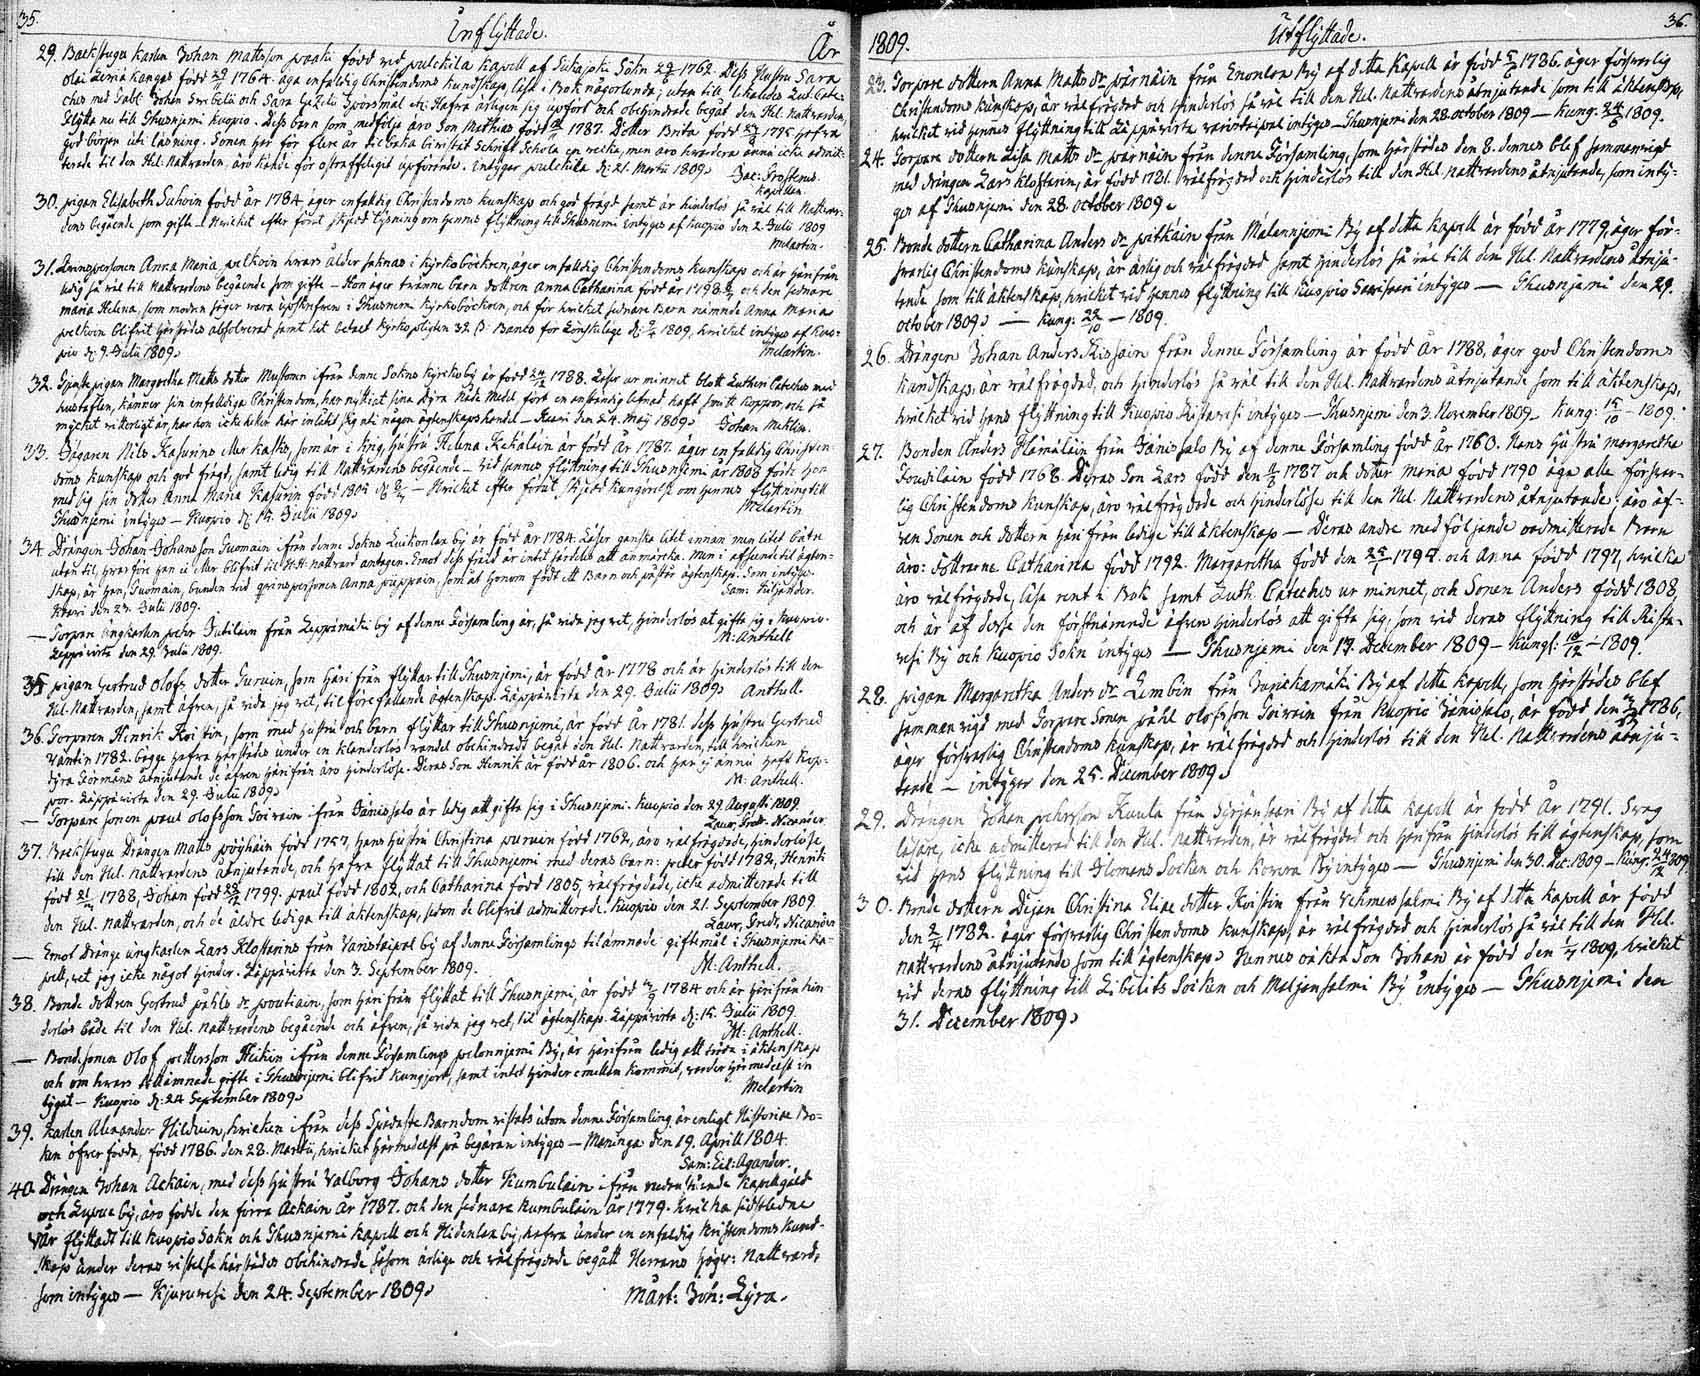 35.
Inflyttade.
År
29. Backstugu karlen Johan Mattsson paaki född vid pulckila kapell af Sikajocki Sokn 1762. Dess Hustru Sara
Olai född 1764. äga enfaldig Christendoms kundskap, läsa i Bok någorlunda; utan till Luth. Cate-
ches med Joh: Svebelii och Sara Gezelii Spörsmål etc: Hafva årligen sig upfört och obehindrade begåt den Hel. Nattvarden,
flytta nu till Thusnjemi Kuopio. Dess barn som medfölja äro Son Mathias född 1787. Dotter Brita född 1795 hafva
god början uti läsning. Sonen har för flere år tilbaka Schola en vecka, men äro hvardera ännu icke admit-
terade til den Hel. Nattvarden, äro kände för ostraffeligit upförande. intygar pulckila d: 21. Martii 1809.
Jac: Frosterus.
Kapellan.
30. pigan Elisabeth Suhoin född år 1784, äger enfaldig Christendoms kunskap och god frägd samt är hinderlös så väl till Nattvar-
dens begående som gifte — Hvilket efter förut skjedd lysning om hennes flyttning till Thusnjemi intyges af Kuopio den 2. Julii 1809
Melartin.
31. Qvinspersonen Anna Maria pelkoin hvars ålder saknas i Kyrko Böckren, äger enfaldig Christendoms kunskap och är härifrån
ledig så väl till Nattvardens begående som gifte — Hon äger tvänne barn dottren Anna Catharina född år 1798 och den sednare
Maria Helena, som modren säger vara i Thusnjemi kyrkoböckren, och för hvilket sednare Barn nämnde Anna Maria
pelkoin blifvit härstädes absolverad samt har betalt Kyrkoplikten 32 ß: Banco för Lönskaläge d: 1809, hvilket intyges af Kuo-
pio d: 9. Julii 1809.
Melartin.
32. Gjäste pigan Margaretha Matts dotter Mustonen ifrån denne Sokns kyrckoby är född 1788. Läser ur minnet blott Lutheri Cateches med
hustaflan, känner sin enfaldiga Christendom, har nyttjat sina Dyra Nåde Medel fört en anständig lefnad haft smitt koppor, och så
mycket vitterligt är, har hon icke heller här inlåtit sig uti någon ägtenskaps handel — Kaavi den 24. Maij 1809.
Johan
33. Dågaren Nils Kasurins eller kalks, som är i krig, hustru Helena Kekälein är född år 1787. äger enfaldig Christen-
doms kunskap och god frägd, samt ledig till Nattvardens begående — vid hennes flyttning till Thusnjemi år 1808 förde hon
med sig sin dotter Anna Maria Kasurin född 1805 — Hvilket efter förut skjedd kungörelse om hennes flyttning till
Thusnjemi intyges — Kuopio d: 14. Julii 1809.
Melartin
34. Drängen Johan Johansson Tuomain ifrån denne Sokns by är född år 1784. Läser ganska litet innan men litet Cate
utan til, hvarföre han ei eller blifvit til H: H: nattvard antagen. Emot dess frägd är intet särdeles att anmärka. Men i afseende til ägten-
skap, är han, Tuomain, bunden vid qvinspersonen Anna puppain, som at honom födt ett Barn och påstår ägtenskap. Som intyge.
Kaavi den 23. Julii 1809.
Sam:
— Torpare ungkarlen petter Jutilain från Leppämäki by af denne Församling är, så vida jag vet, hinderlös at gifta sig i Kuopio.
Leppävirta den 29. Julii 1809.
M: Anthell
35 pigan Gertrud Olofs dotter Turuin, som häri från flyttar till Thusnjemi, är född år 1778 och är hinderlös till den
Hel. Nattvarden, samt äfven, så vida jag vet, til förefallande ägtenskap. Läppävirta den 29. Julii 1809.
Anthell.
36. Torparen Henrik Koistin, som med hustru och barn flyttar till Thusnjemi, är född år 1781. dess hustru Gertrud
Vantin 1782. begge hafva härstädes under en klanderlös vandel obehindradt begåt den Hel. Nattvarden, till hvilken
dyra Förmåns åtnjutande de äfven härifrån äro hinderlöse. Deras Son Henrik är född år 1806. och har ej ännu haft kop-
por. Läppävirta den 29. Julii 1809.
M: Anthell.
— Torpare sonen paul Olofsson Toivain ifrån Jänissalo är ledig att gifta sig i Thusnjemi. Kuopio den 29. Augusti 1809.
Laur: Fredr: Nicander
37. Backstugu Drängen Matts pöyhöin född 1757, hans hustru Christina purnin född 1762, äro välfrägdade, hinderlöse
till den Hel. Nattvardens åtnjutande, och hafva flyttat till Thusnjemi med deras barn: petter född 1782, Henrik
född 1788, Johan född 1799. paul född 1802, och Catharina född 1805, välfrägdade, icke admitterade till
den Hel. Nattvarden, och de äldre lediga till äktenskap, sedan de blifvit admitterade. Kuopio den 21. September 1809.
Laur, Fredr, Nicander
— Emot Dränge ungkarlen Lars Klosterins från Varistaipal by af denne Församlings tilämnade giftemål i Thusnjemi ka-
pell, vet jag icke något hinder. Läppävirta den 3. September 1809.
M: Anthell.
38. Bonde dottren Gertrud påhls dr poutiain, som härifrån flyttat till Thusnjemi, är född 1784 och är härifrån hin-
derlös både til den Hel. Nattvardens begående och äfven, så vida jag vet, til ägtenskap. Läppävirta d: 15. Julii 1809.
M: Anthell.
— Bondesonen Olof pettersson Heikin ifrån denne Församlings pelonnjemi By, är härifrån ledig att träda i äktenskap
och om hvars tillämnade gifte i Thusnjemi blifvit kungjort, samt intet hinder emellan kommit, varder här medelst in
tygat — Kuopio d: 24 September 1809.
Melartin
39. Karlen Alexander Hilduin, hvilken ifrån dess Spädaste Barndom vistats utom denne Församling är enligt Historiae Bo-
ken öfver födda, född 1786. den 28. Martii, hvilket härmedelst på begäran intyges — Maninga den 19. Aprill 1804.
Sam: Eli: Agander.
40. Drängen Johan Ackain, med dess hustru Valborg Johans dotter Kumbulain ifrån nedan stående kapellgäld
och Luppue by, äro födde den förra Ackain år 1787. och den sednare Kumbulain år 1779. hvilka sidstledne
Vår flyttadt till Kuopio Sokn och Thusnjemi kapell och Hidenlax by, hafva under en enfaldig Kristendoms kund-
skap under deras vistelse härstädes obehindrade såsom ärlige och välfrägdade begått Herrans högv: Nattvard,
som intyges — Kjuruvesi den 24. September 1809.
Mårt: Joh: Lyra.
36.
1809.
Utflyttade.
23. Torpare dottern Anna Matts dr pärnäin från Enonlax By af detta Kapell är född 1786. äger försvarlig
Christendoms kunskap, är välfrägdad och hinderlös så väl till den Hel. Nattvardens åtnjutande som till äktenskap,
hvilket vid hennes flyttning till Läppävirta Varistaipal intyges — Thusnjemi den 28. October 1809 — Kung: 1809.
24. Torpare dottern Lisa Matts dr pärnäin från denne Församling, som härstädes den 8. dennes blef sammanvigd
med drängen Lars Klosterin, är född 1781. välfrägdad och hinderlös till den Hel. Nattvardens åtnjutande, som inty-
ges af Thusnjemi den 28. October 1809.
25. Bonde dottern Catharina Anders dr pitkäin från Mälannjemi By af detta Kapell är född år 1779, äger för-
svarlig Christendoms kunskap, är ärlig och välfrägdad samt hinderlös så väl till den Hel. Nattvardens åtnju-
tande som till äktenskap, hvilket vid hennes flyttning till Kuopio intyges — Thusnjemi den 29.
October 1809. — Kung: 22/10 — 1809.
26. Drängen Johan Anders. Kissain från denne Församling är född år 1788, äger god Christendoms
kundskap, är välfrägdad, och hinderlös så väl till den Hel. Nattvardens åtnjutande som till äktenskap,
hvilket vid hans flyttning till Kuopio Ristavesi intyges — Thusnjemi den 3. November 1809. Kung: 15/10 — 1809.
27. Bonden Anders Hämäläin från Jänissalo By af denne Församling född år 1760. Hans Hustru Margaretha
Toudilain född 1768. Deras Son Lars född den 1787 och dotter Maria född 1790 äga alla försvar-
lig Christendoms kunskap, äro välfrägdade och hinderlöse till den Hel. Nattvardens åtnjutande; äro äf-
ven Sonen och dottern häri från ledige till äktenskap — Deras andre medföljande oadmitterade Barn
äro: döttrarne Catharina född 1792. Margaretha född den 1794 och Anna född 1797, hvilka
äro välfrägdade, läsa rent i Bok samt Luth. Cateches ur minnet, och Sonen Anders född 1808,
och är af desse den förstnämnde äfven hinderlös att gifta sig, som vid deras flyttning till Rista-
vesi By och Kuopio Sokn intyges — Thusnjemi den 17. December 1809 — Kungl: 10/12 — 1809.
28. pigan Margaretha Anders dr Lembin från Jynekämäki By af detta kapell, som härstädes blef
sammanvigd med Torpare Sonen påhl Olofsson Toivain från Kuopio Jänissalo, är född den 1786,
äger försvarlig Christendoms kunskap, är välfrägdad och hinderlös till den Hel. Nattvardens åtnju-
tande — intyger den 25. December 1809.
29. Drängen Johan pehrsson Kaula från Syrjänsari By af detta kapell är född år 1791. Svag
läsare, icke admitterad till den Hel. Nattvarden, är välfrägdad och härifrån hinderlös till ägtenskap, som
vid hans flyttning till Ilomans Socken och Kovera By intyges — Thusnjemi den 30. Dec: 1809 — Kung: 24/12 1809.
30. Bonde dottern Dejan Christina Elias dotter Koistin från Vehmersalmi By af detta Kapell är född
den 2/4 1782. äger försvarlig Christendoms kunskap, är välfrägdad och hinderlös så väl till den Hel.
Nattvardens åtnjutande som till ägtenskap. Hennes oäkta Son Johan är född den 1809, hvilket
vid deras flyttning till Libelits Socken och Matjansalmi By intyges — Thusnjemi den
31. December 1809.